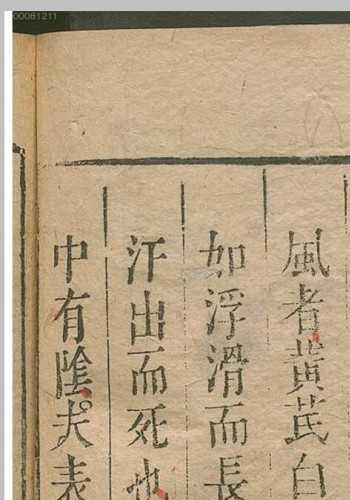 00081211
風者黃芪白
如浮滑而長
汗出而死也
中有陰夫表